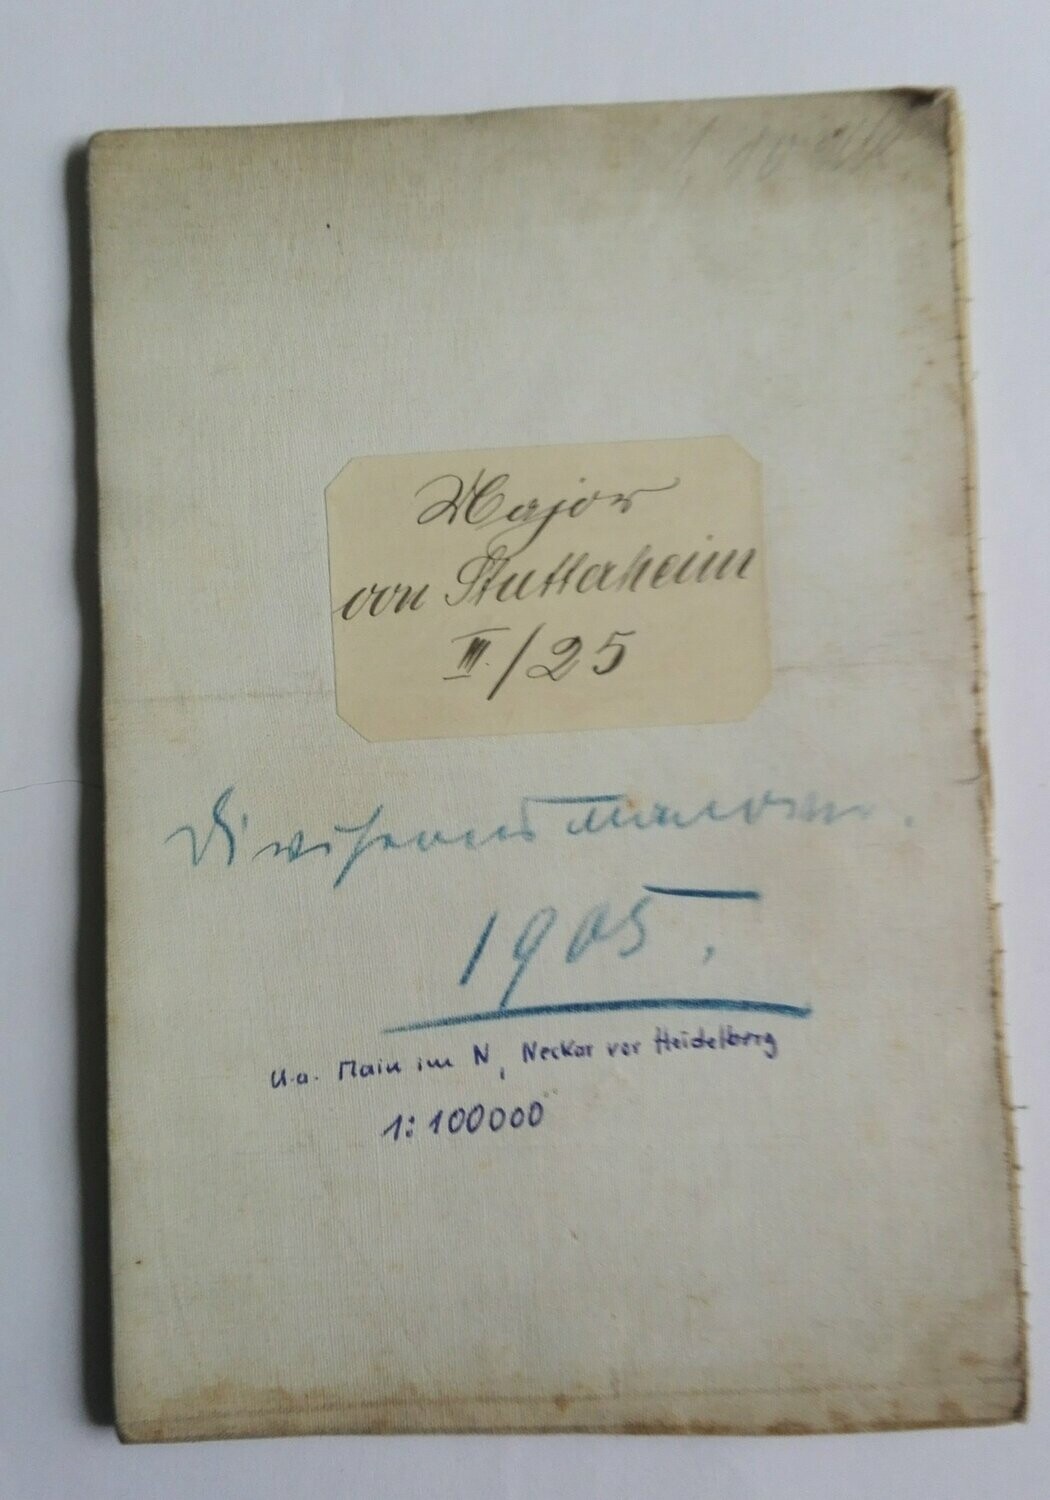 Major
von Stutterheim
III./25
Divisionsmanöver.
1905.
u.a. Main im N, Neckar vor Heidelberg
1:100000